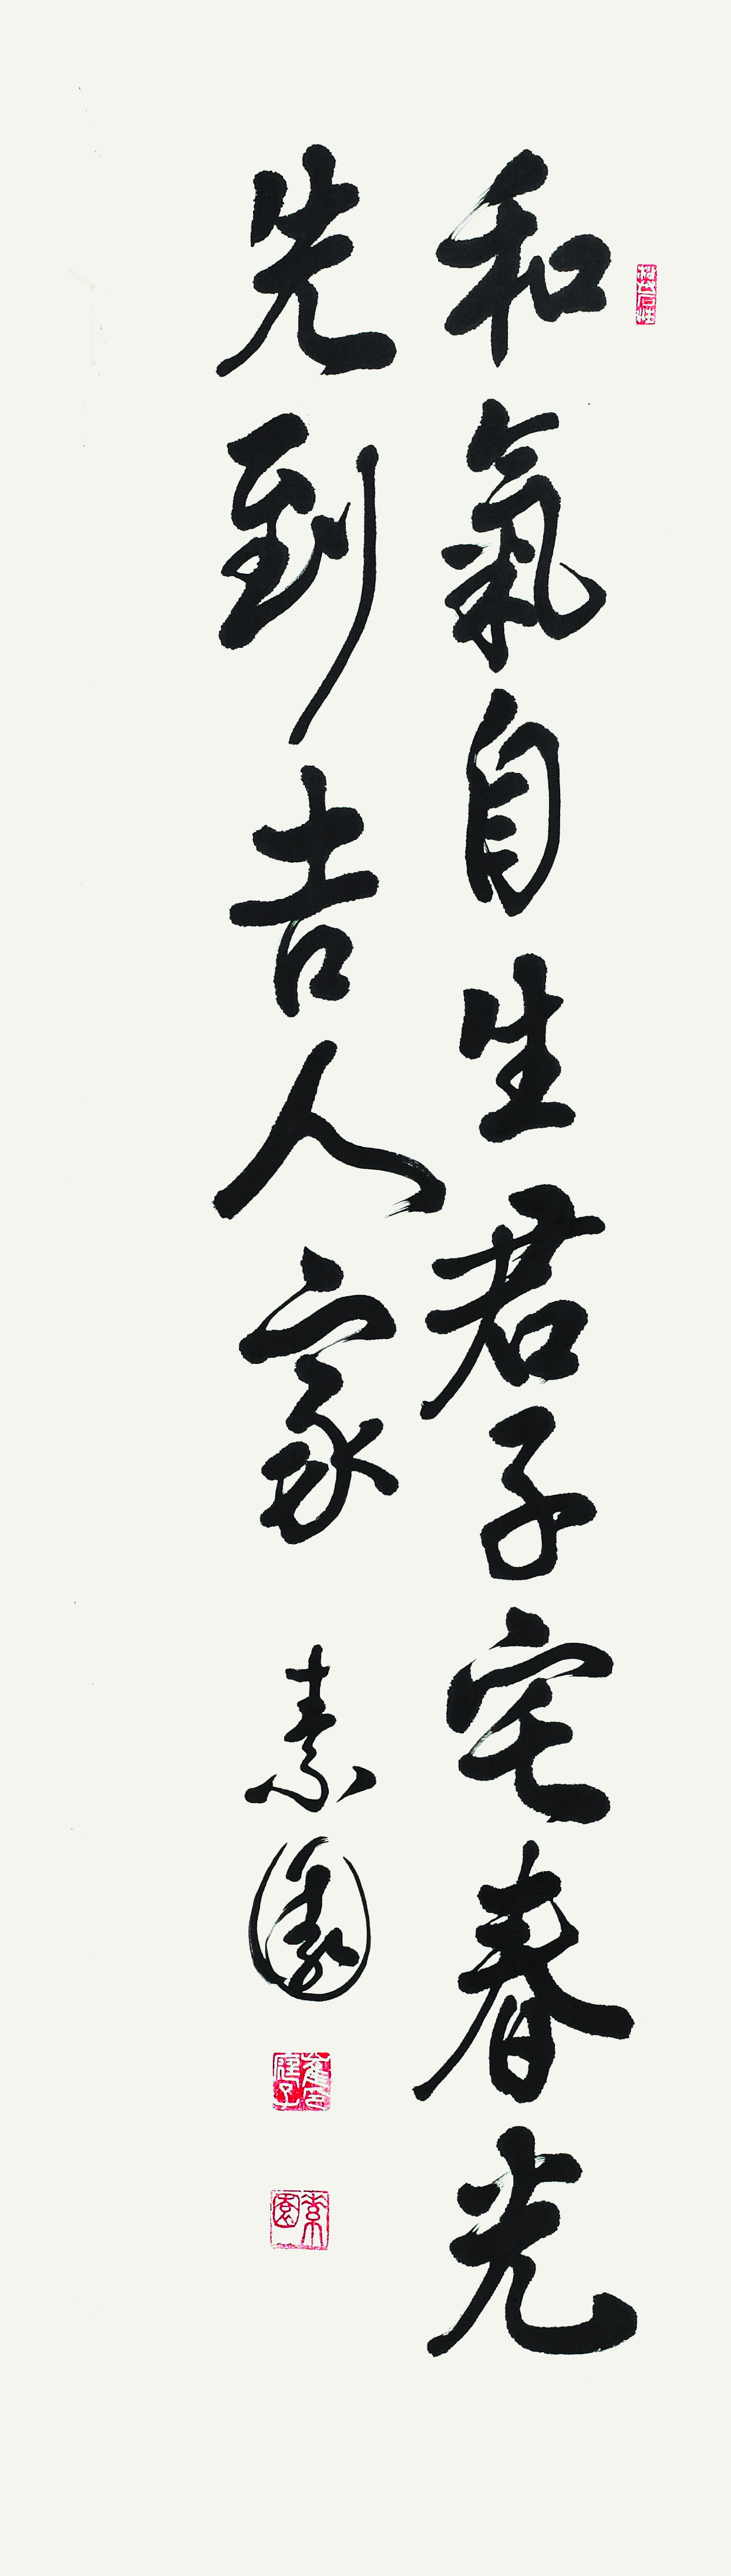 和氣自生君子宅春光
先到吉人家
素園
素園